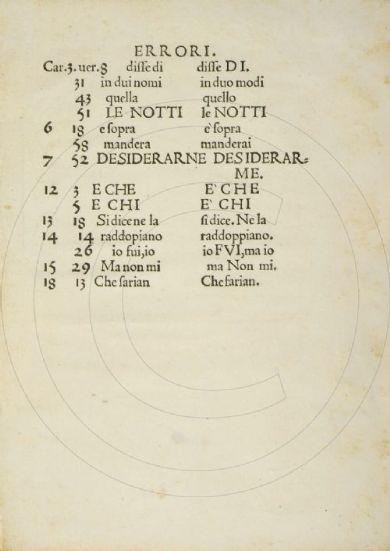 ERRORI.
Car.3. uer.8 disse di disse DI.
31 in dui nomi in duo modi
43 quella quello
51 LE NOTTI le NOTTI
6 18 e sopra è sopra
58 mandera manderai
7 52 DESIDERARNE DESIDERAR=
ME.
12 3 E CHE E' CHE
5 E CHI E' CHI
13 18 Si dice ne la si dice. Ne la
14 14 raddopiano raddoppiano.
26 io fui, io io FVI, ma io
15 29 Ma non mi ma Non mi.
18 13 Che sarian Che farian.